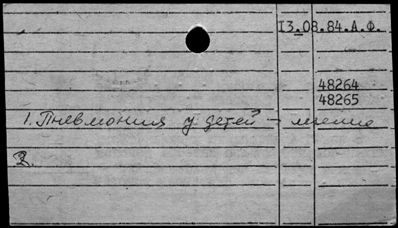 13.08.84.А.Ф.
48264
48265
1. Пневмония у детей - лечение
2.